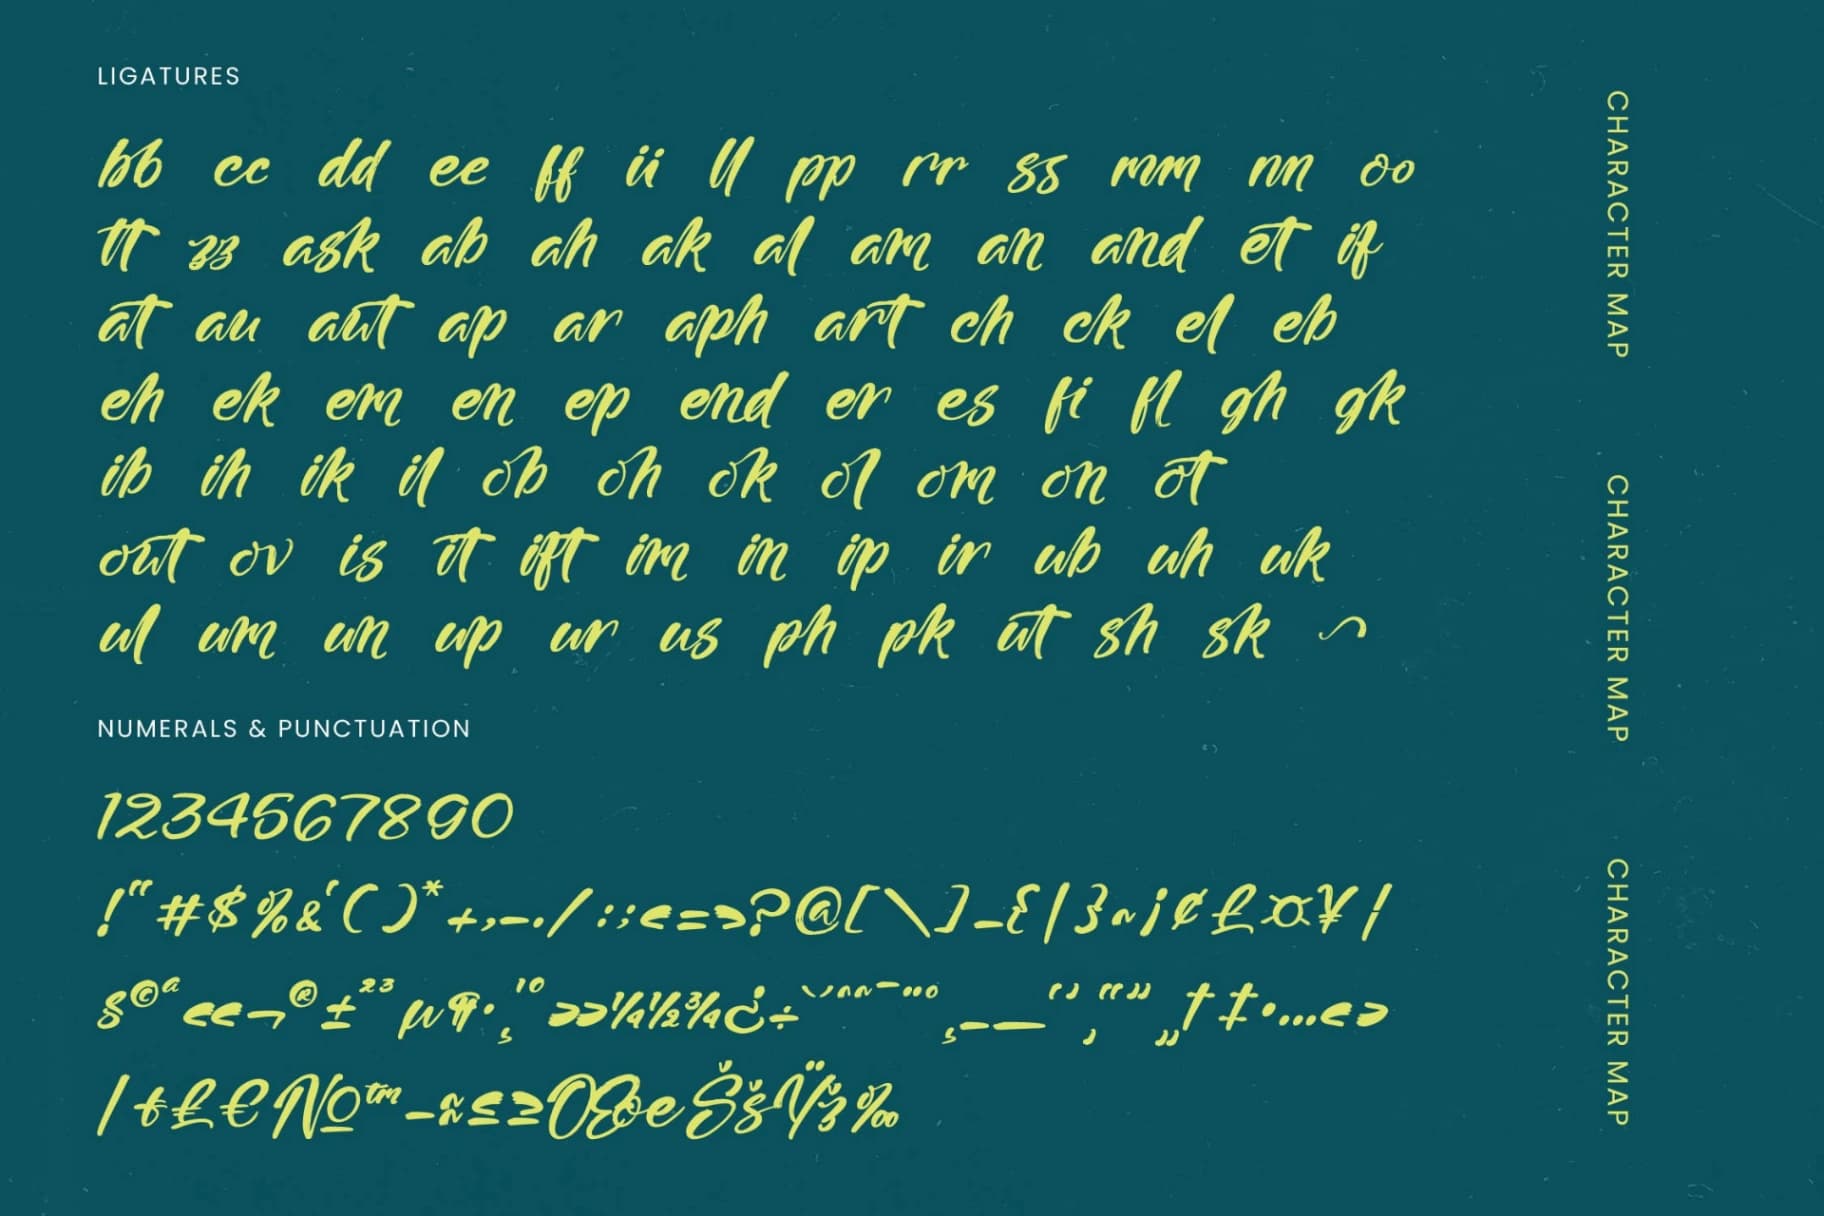 LIGATURES
bb cc dd ee ff ii ll pp rr ss mm nn oo
tt zz ask ab ah ak al am an and et if
at au aut ap ar aph art ch ck el eb
eh ek em en ep end er es fi fl gh gk
ib ih ik il ob oh ok ol om on ot
out ov is it ift im in ip ir ub uh uk
ul um un up ur us ph pk ut sh sk
NUMERALS & PUNCTUATION
1234567890
!"#$%&'()*+,-./:;<=>?@[\]_{|}~¡¢£¤¥¦
§©ª««¬®±²³µ¶·¸¹º»»¼½¾¿÷
†‡•…‹›
€№™−≈≤≥ŒœŠšŸž‰
CHARACTER MAP
CHARACTER MAP
CHARACTER MAP